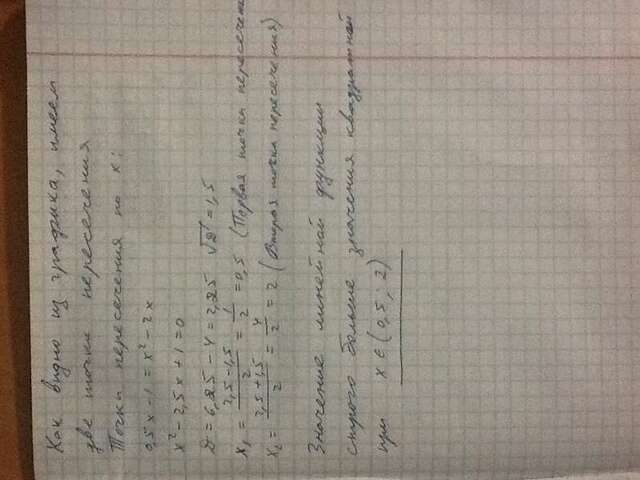 Как видно из графика, имеем
две точки пересечения
Точки пересечения по x:
0,5x - 1 = x² - 2x
x² - 2,5x + 1 = 0
D = 6,25 - 4 = 2,25 √D = 1,5
x₁ = (2,5 - 1,5)/2 = 1/2 = 0,5 (Первая точка пересечен
x₂ = (2,5 + 1,5)/2 = 4/2 = 2 (Вторая точка пересечения)
Значение линейной функции
строго больше значения квадратной
при x ∈ (0,5 ; 2)